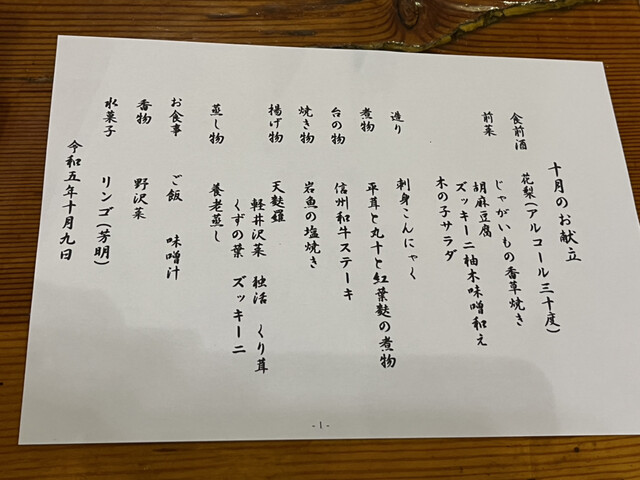 十月のお献立
食前酒 花梨(アルコール三十度)
前菜 じゃがいもの香草焼き
胡麻豆腐
ズッキーニ柚木味噌和え
木の子サラダ
造り 刺身こんにゃく
煮物 平茸と丸十と紅葉麩の煮物
台の物 信州和牛ステーキ
焼き物 岩魚の塩焼き
揚げ物 天麩羅
軽井沢菜 独活 くり茸
くずの葉 ズッキーニ
蒸し物 養老蒸し
お食事 ご飯 味噌汁
香物 野沢菜
水菓子 リンゴ(芳明)
令和五年十月九日
-1-